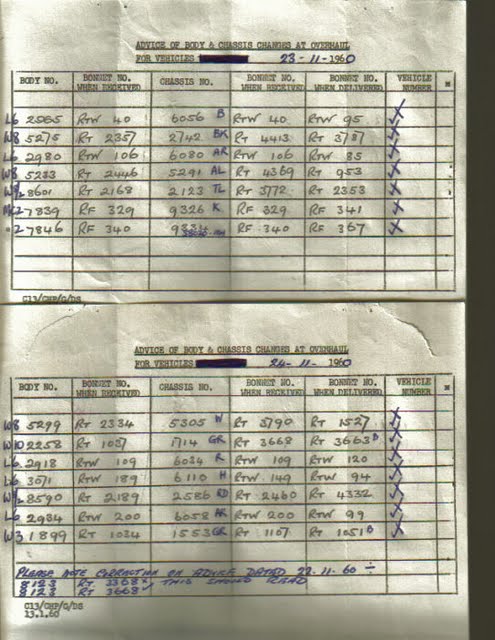 ADVICE OF BODY & CHASSIS CHANGES AT OVERHAUL
FOR VEHICLES 23-11-1960
BODY NO. BONNET NO. WHEN RECEIVED CHASSIS NO. BONNET NO. WHEN RECEIVED BONNET NO. WHEN DELIVERED VEHICLE NUMBER
L6 2965 RTW 40 6056 B RTW 40 RTW 95 X
W8 5275 RT 2357 2742 BK RT 4413 RT 3787 X
L6 2980 RTW 106 6080 AR RTW 106 RTW 85 X
W8 RT 2446 5291 AL RT 4369 RT 953 X
8601 RT 2168 2123 TL RT 3772 RT 2353 X
7839 RF 329 9326 K RF 329 RF 341 X
7846 RF 340 RF 340 RF 367 X
C13/CHP/G/DS
ADVICE OF BODY & CHASSIS CHANGES AT OVERHAUL
FOR VEHICLES 24-11-1960
BODY NO. BONNET NO. WHEN RECEIVED CHASSIS NO. BONNET NO. WHEN RECEIVED BONNET NO. WHEN DELIVERED VEHICLE NUMBER
W8 5299 RT 2334 5305 W RT 3790 RT 1527 X
W10 2258 RT 1037 1714 GR RT 3668 RT 3663 B X
L6 2918 RTW 109 6034 R RTW 109 RTW 120 X
L6 3071 RTW 189 6110 H RTW 149 RTW 94 X
8590 RT 2189 2586 RD RT 2460 RT 4332 X
L6 2984 RTW 200 6058 AR RTW 200 RTW 99 X
W3 1899 RT 1034 1553 GR RT 1107 RT 1051 B X
PLEASE NOTE CORRECTION ON ADVICE DATED 22.11.60 ÷
8123 RT 3368 X THIS SHOULD READ
8123 RT 3668 ✓
C13/CHP/G/DS
13.1.60